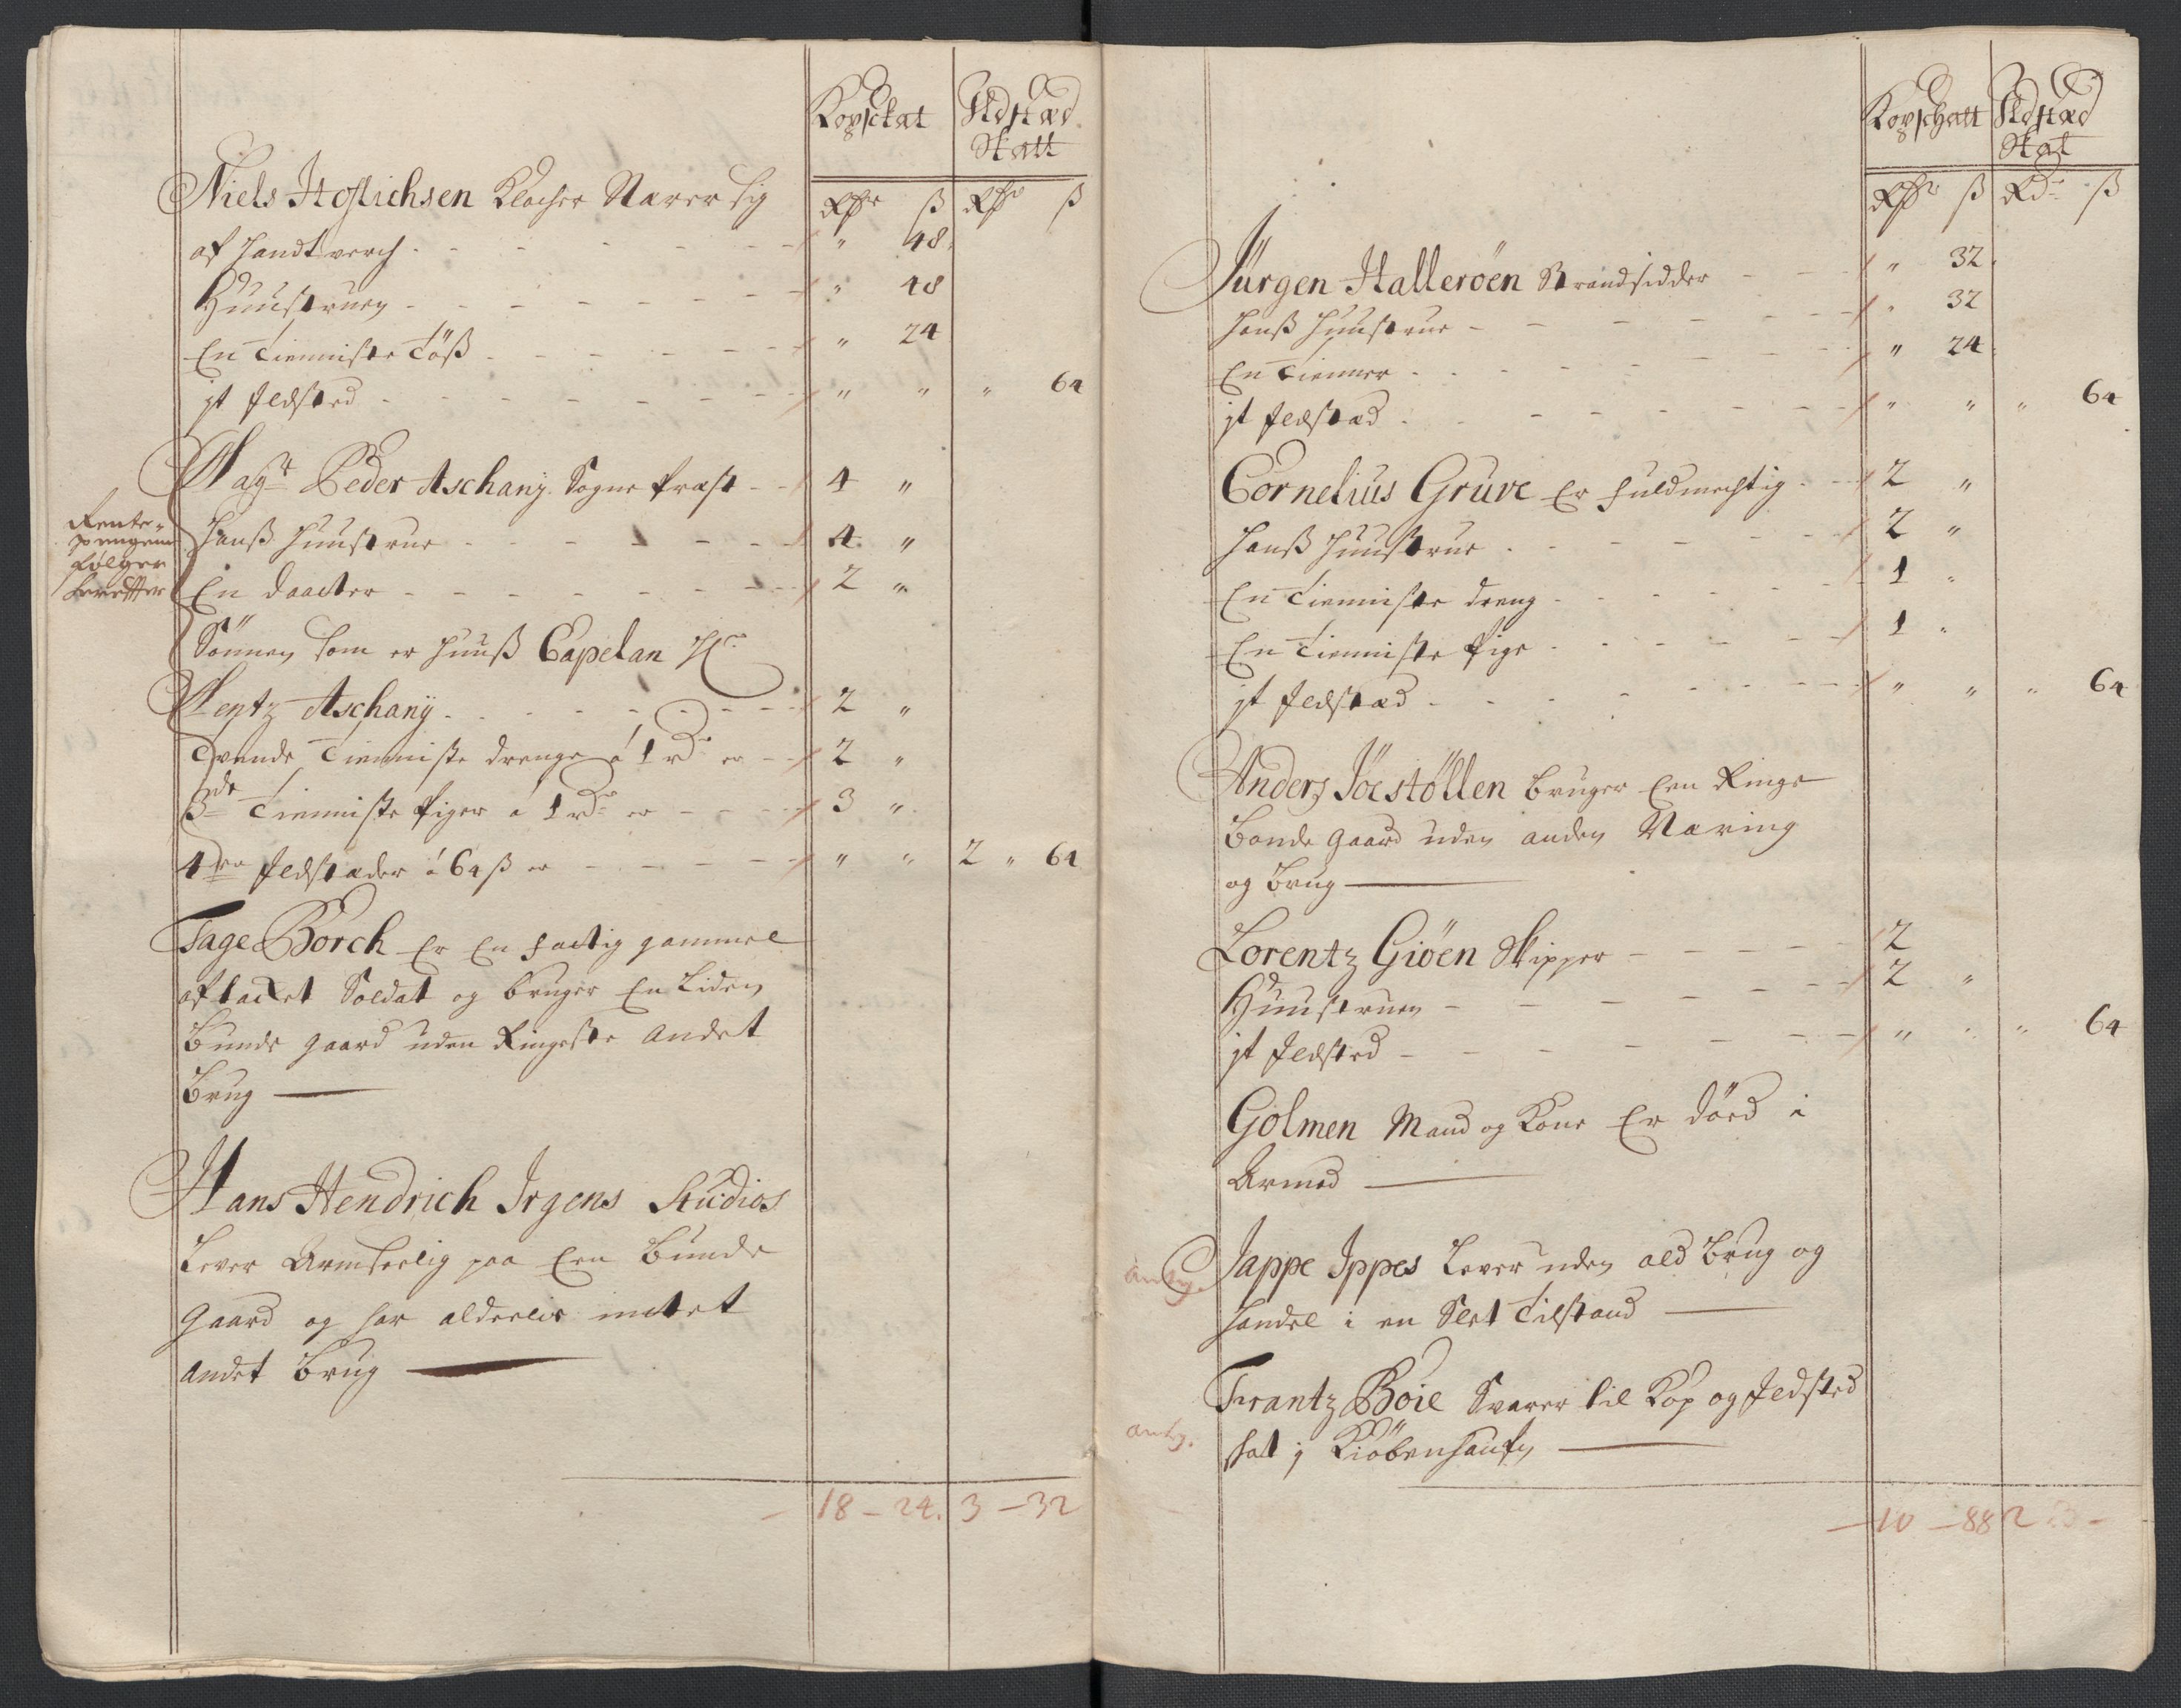 Kopskat Ildstæd
Skatt
Rdr ß Rdr ß
Niels Hoflichsen Klocher Nærer sig
af Handtverch - - - " 48
Huustruen - - - " 48
En Tienniste Töß - - - " 24
jt Jldsted - - - " " " 64
Magr Peder Aschanj Sogne Præst - - 4 "
Rente-
pengene
følger
herefter
Hanß Huustrue - - - 4 "
En Daatter - - - 2 "
Sönnen som er Huuß Capelan Hr
Mentz Aschanÿ - - - 2 "
Tvende Tienniste drenge á 1 rd er - - 2 "
3de Tienniste Piger á 1 rd er - - - 3 "
4re Jldstæder á 64 ß er - - - " " 2 " 64
Tage Borch Er En fattig gammel
aftacket Soldat og bruger En Liden
Bunde gaard uden Ringeste Andet
Brug —
Hans Hendrich Irgens Studios
Lever Armseelig paa Een Bunde
Gaard og har alderlis intet
Andet Brug —
18 - 24. 3 - 32
Kopschatt Ildstæd
Skat
Rdr ß Rdr ß
Jürgen Halleröen Strandsidder - - " 32
Hanß Huustrue - - - " 32
En Tienner - - - " 24
jt Jldstæd - - - " " " 64
Cornelius Gruve Er fuldmechtig - - 2 "
Hanß Huustrue - - - 2 "
En Tienniste dreng - - - 1 "
En Tienniste Pige - - - 1 "
jt Jldstæd - - - " " " 64
Anders Jöestöllen bruger Een Ringe
Bonde gaard uden anden Næring
og Brug —
Lorentz Giöen Skipper - - - 2
Huustruen - - - 2 "
jt Jldsted - - - " " " 64
Golmen Mand og Kone Er döed i
Armod —
Jappe Ippes Lever uden all Brug og
Handel i en Slet Tilstand —
Frantz Boie Svarer til Kop og Jldsted
skat j Kiöbenhaufn —
10 - 88 2